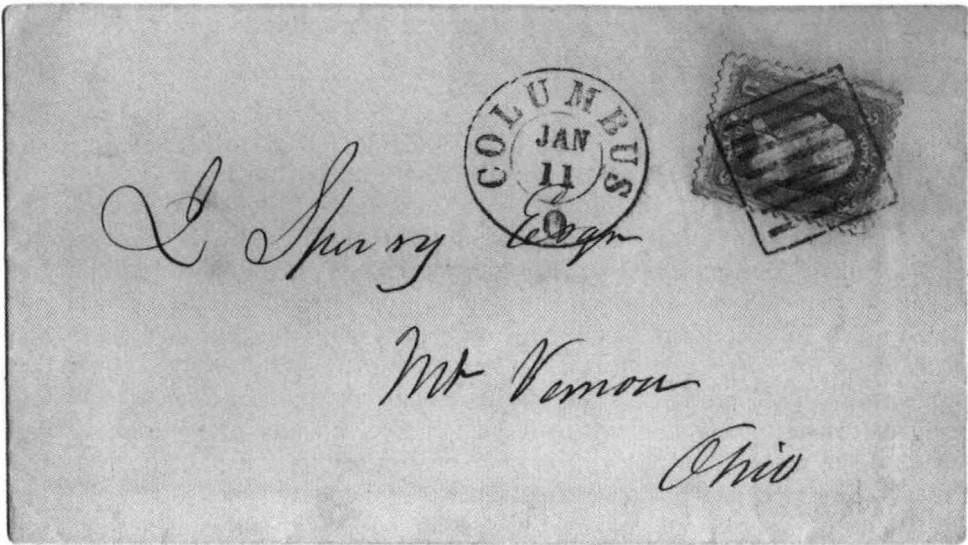 COLUMBUS
JAN
11
O.
L Sperry Esqr
Mt Vernon
Ohio